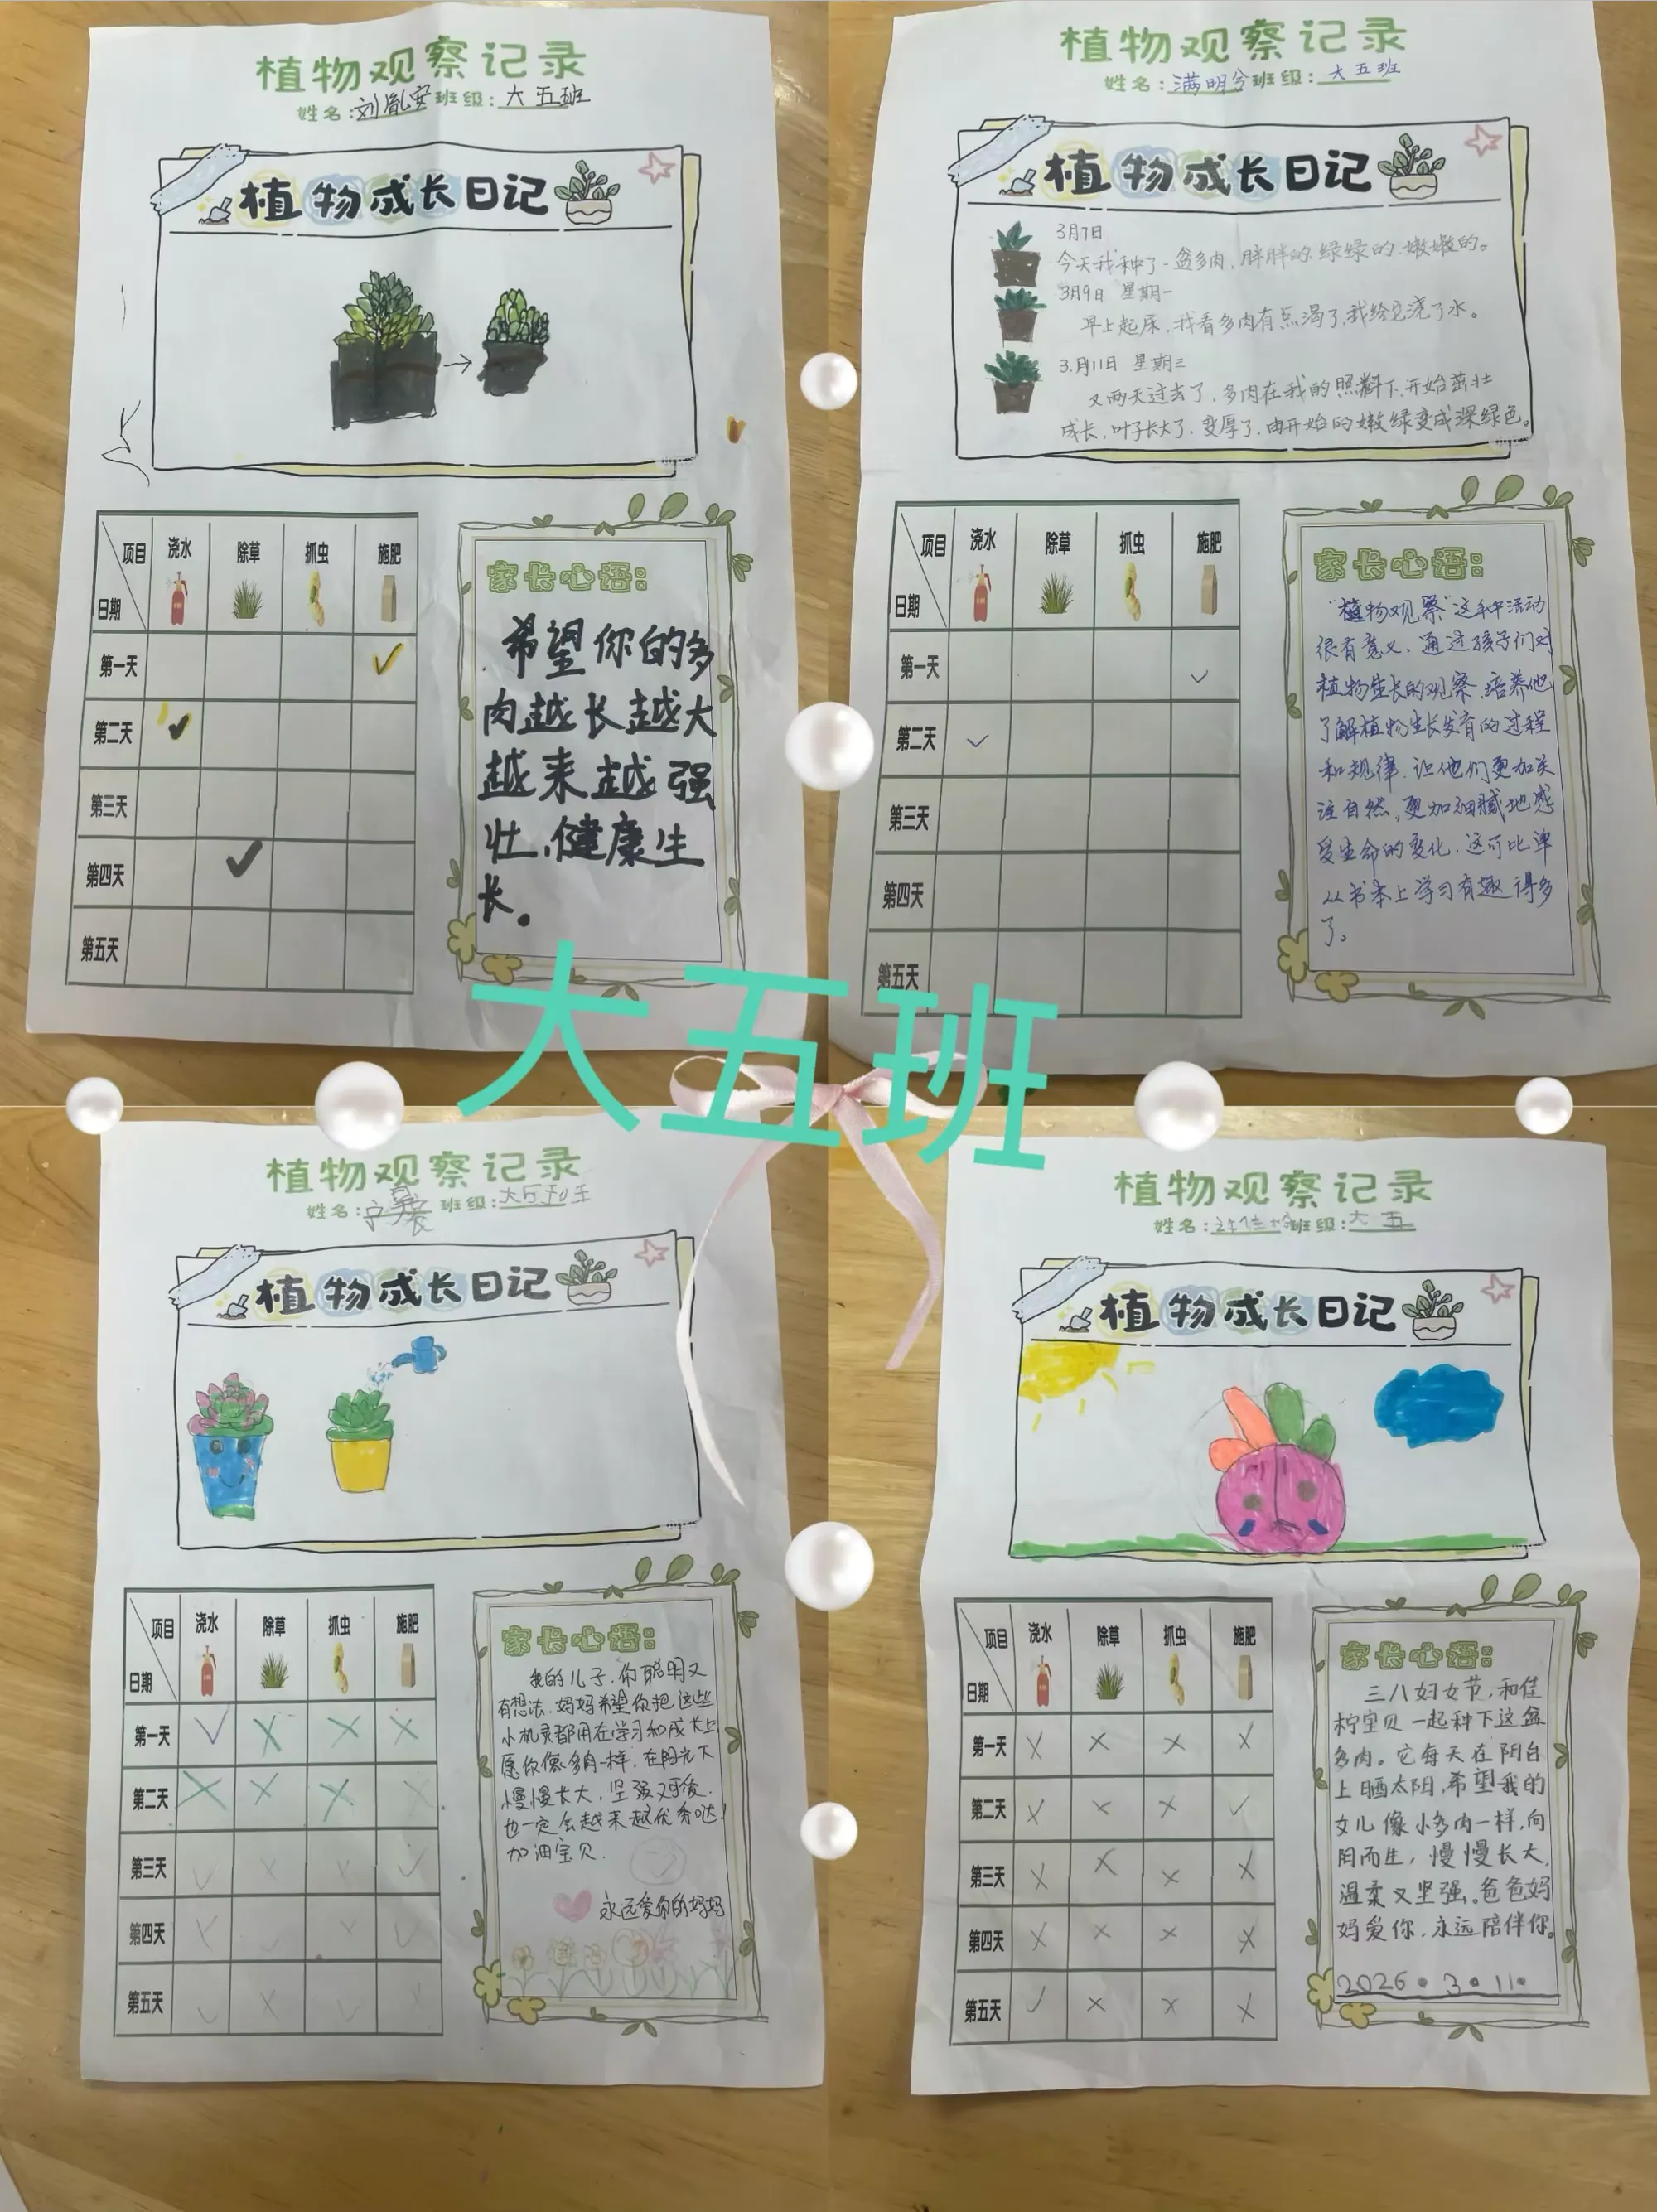 植物观察记录
姓名：刘胤安 班级：大五班
植物成长日记
项目 浇水 除草 抓虫 施肥
日期
第一天 ✓
第二天 ✓
第三天
第四天 ✓
第五天
家长心语：
希望你的多
肉越长越大
越来越强
壮、健康生
长。
植物观察记录
姓名：满明兮 班级：大五班
植物成长日记
3月7日
今天我种了一盆多肉，胖胖的 绿绿的 嫩嫩的。
3月9日 星期一
早上起床，我看多肉有点渴了，我给它浇了水。
3月11日 星期三
又两天过去了，多肉在我的照料下，开始茁壮
成长，叶子长大了，变厚了，由开始的嫩绿变成深绿色。
项目 浇水 除草 抓虫 施肥
日期
第一天 ✓
第二天 ✓
第三天
第四天
第五天
家长心语：
“植物观察”这种活动
很有意义，通过孩子们对
植物生长的观察，培养他
了解植物生长发育的过程
和规律，让他们更加关
注自然，更加细腻地感
受生命的变化，这可比单
从书本上学习有趣得多
了。
大五班
植物观察记录
姓名： 班级：
植物成长日记
项目 浇水 除草 抓虫 施肥
日期
第一天 ✓ × × ×
第二天 × × × ×
第三天 ✓ × × ✓
第四天 ✓ ✓ × ✓
第五天 ✓ × ✓ ×
家长心语：
我的儿子，你聪明又
有想法，妈妈希望你把这些
小机灵都用在学习和成长上，
愿你像多肉一样，在阳光下
慢慢长大，坚强又可爱，
也一定会越来越优秀哒！
加油宝贝．
永远爱你的妈妈
植物观察记录
姓名：佳柠 班级：大五
植物成长日记
项目 浇水 除草 抓虫 施肥
日期
第一天 × × × ×
第二天 × × × ✓
第三天 × × × ×
第四天 × × × ×
第五天 ✓ × × ×
家长心语：
三八妇女节，和佳
柠宝贝一起种下这盆
多肉。它每天在阳台
上晒太阳，希望我的
女儿像小多肉一样，向
阳而生，慢慢长大，
温柔又坚强。爸爸妈
妈爱你，永远陪伴你。
2026.3.11.